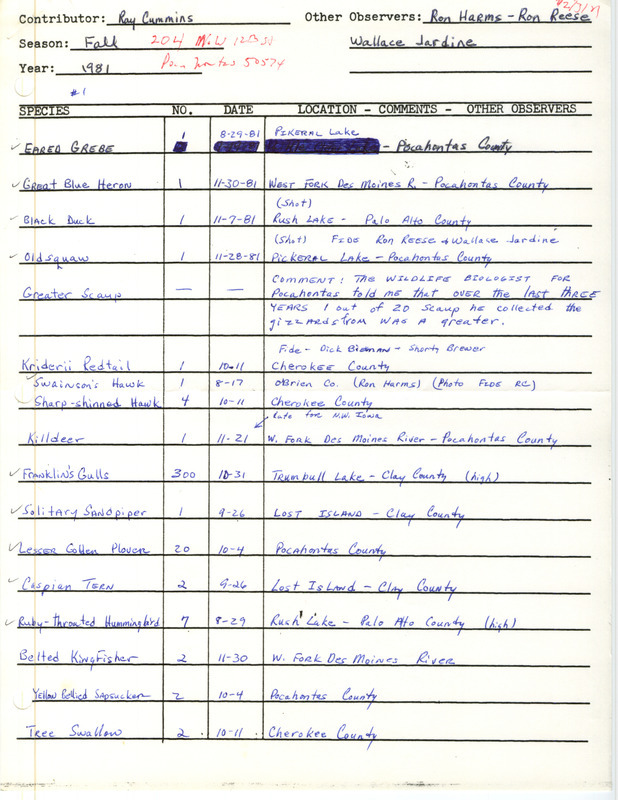 Contributor: Ray Cummins Other Observers: Ron Harms - Ron Reese
Season: Fall 204 Wallace Jardine
Year: 1981 50574
#1
SPECIES NO. DATE LOCATION - COMMENTS - OTHER OBSERVERS
EARED GREBE 1 8-29-81 PIKERAL Lake - Pocahontas County
✓ Great Blue Heron 1 11-30-81 West Fork Des Moines R. - Pocahontas County
(Shot)
✓ Black Duck 1 11-7-81 Rush LAKE - Palo Alto County
(Shot) FIDE Ron Reese & Wallace Jardine
✓ Oldsquaw 1 11-28-81 PICKERAL Lake - Pocahontas County
Greater Scaup — — COMMENT: THE WILDLIFE BIOLOGIST FOR
Pocahontas told me that over the last three
YEARS 1 out of 20 Scaup he collected the
gizzards from WAS A greater.
Fide - Dick Bierman - Shorty Brewer
Kriderii Redtail 1 10-11 Cherokee County
✓ Swainson's Hawk 1 8-17 O'Brien Co. (Ron Harms) (Photo FIDE RC)
✓ Sharp-shinned Hawk 4 10-11 Cherokee County
Late for N.W. Iowa
Killdeer 1 11-21 W. Fork Des Moines River - Pocahontas County
✓ Franklin's Gulls 300 10-31 Trumbull Lake - Clay County (high)
✓ Solitary Sandpiper 1 9-26 LOST ISLAND - Clay County
✓ Lesser Golden Plover 20 10-4 Pocahontas County
✓ Caspian TERN 2 9-26 Lost Island - Clay County
✓ Ruby-throated Hummingbird 7 8-29 Rush Lake - Palo Alto County (high)
Belted Kingfisher 2 11-30 W. Fork Des Moines River
Yellow Bellied Sapsucker 2 10-4 Pocahontas County
Tree Swallow 2 10-11 Cherokee County